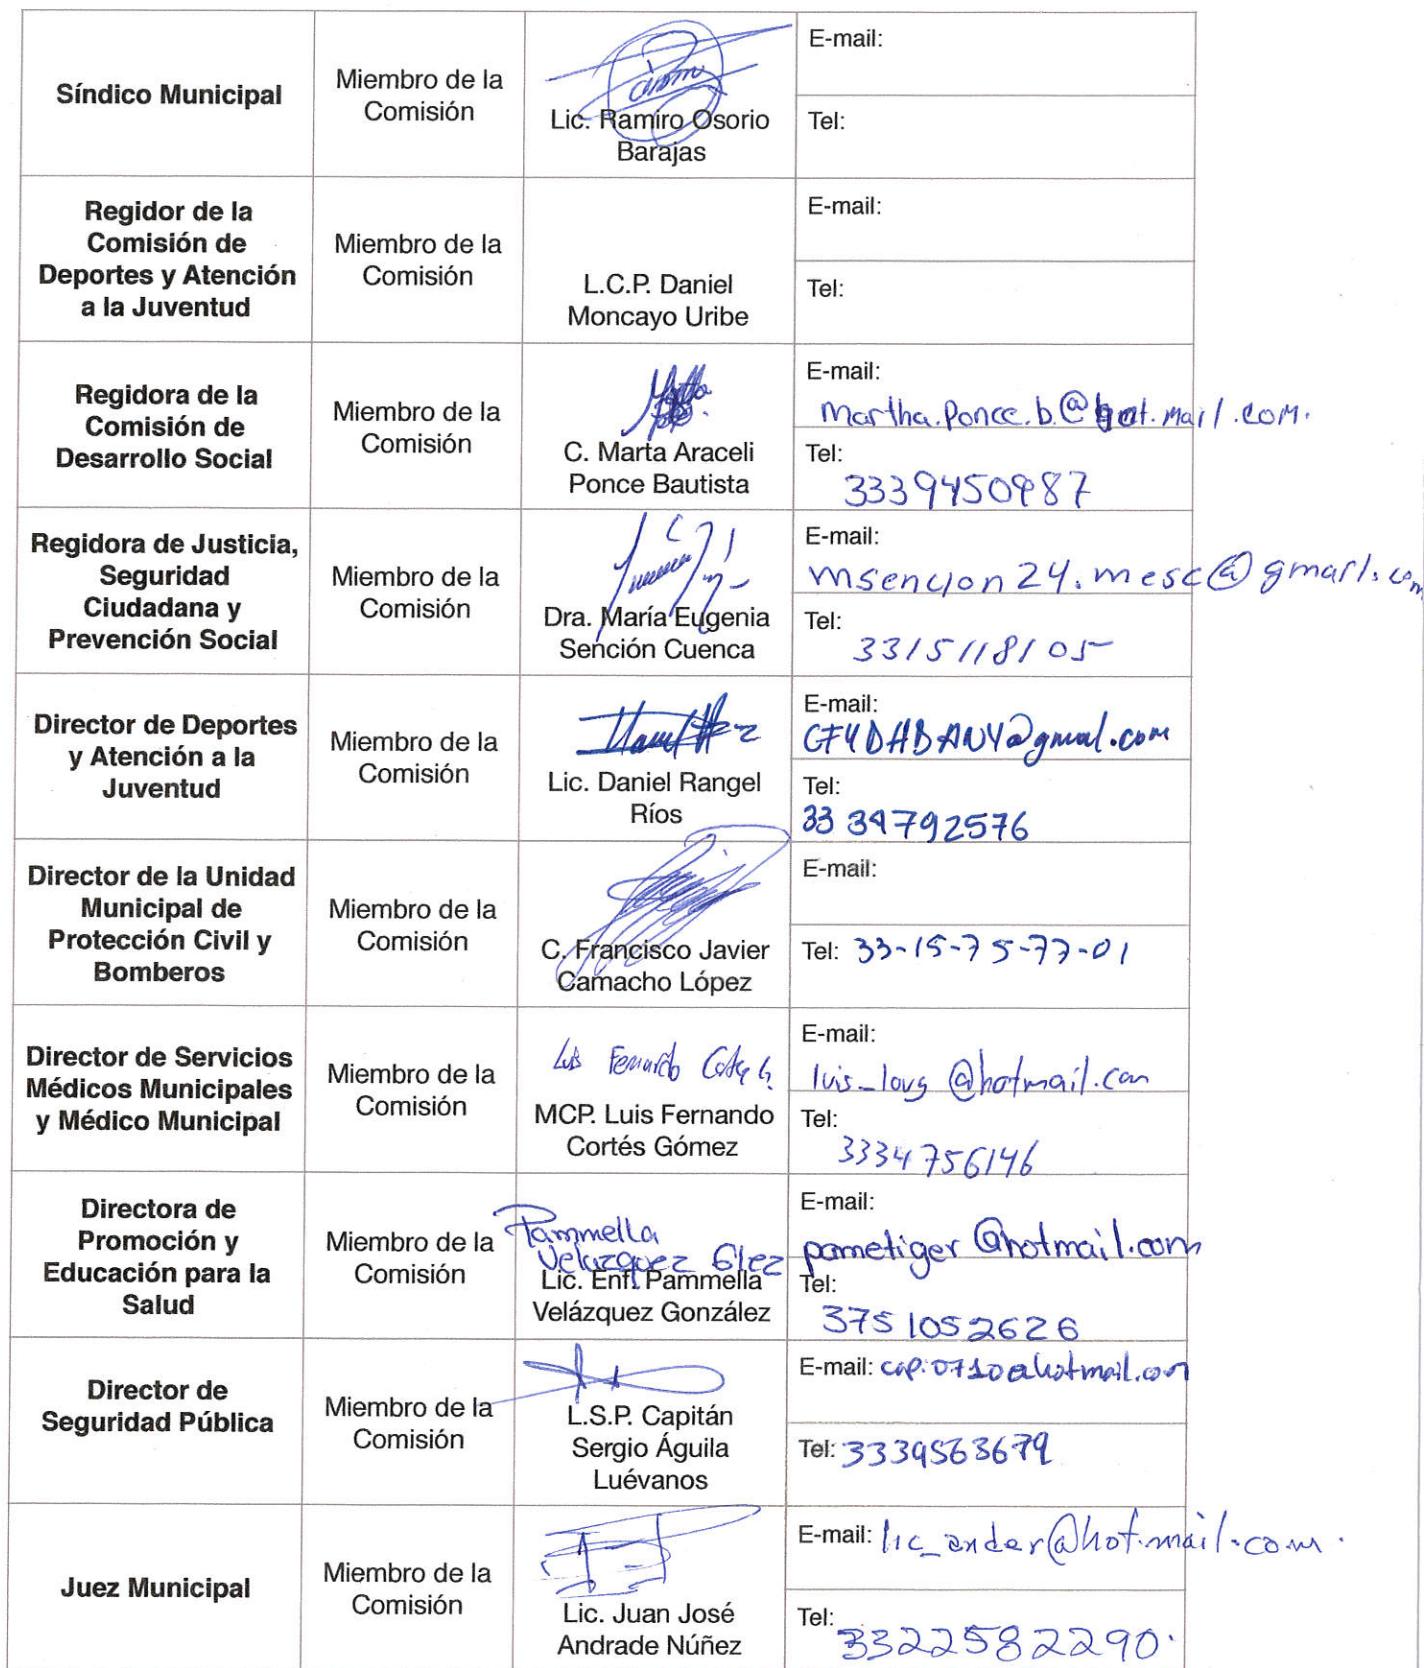 Síndico Municipal
Miembro de la
Comisión
Lic. Ramiro Osorio
Barajas
E-mail:
Tel:
Regidor de la
Comisión de
Deportes y Atención
a la Juventud
Miembro de la
Comisión
L.C.P. Daniel
Moncayo Uribe
E-mail:
Tel:
Regidora de la
Comisión de
Desarrollo Social
Miembro de la
Comisión
C. Marta Araceli
Ponce Bautista
E-mail:
Martha.Ponce.b@hot.mail.com.
Tel:
3339450987
Regidora de Justicia,
Seguridad
Ciudadana y
Prevención Social
Miembro de la
Comisión
Dra. María Eugenia
Sención Cuenca
E-mail:
msencion24.mesc@gmail.com
Tel:
3315118105
Director de Deportes
y Atención a la
Juventud
Miembro de la
Comisión
Lic. Daniel Rangel
Ríos
E-mail:
Tel:
33 34792576
Director de la Unidad
Municipal de
Protección Civil y
Bomberos
Miembro de la
Comisión
C. Francisco Javier
Camacho López
E-mail:
Tel: 33-15-75-77-01
Director de Servicios
Médicos Municipales
y Médico Municipal
Miembro de la
Comisión
Luis Fernando Cortes G.
MCP. Luis Fernando
Cortés Gómez
E-mail:
luis_lovg@hotmail.com
Tel:
3334756146
Directora de
Promoción y
Educación para la
Salud
Miembro de la
Comisión
Pammella
Velazquez Glez
Lic. Enf. Pammella
Velázquez González
E-mail:
pametiger@hotmail.com
Tel:
3751052626
Director de
Seguridad Pública
Miembro de la
Comisión
L.S.P. Capitán
Sergio Águila
Luévanos
E-mail: cap.0710@hotmail.com
Tel: 3339563679
Juez Municipal
Miembro de la
Comisión
Lic. Juan José
Andrade Núñez
E-mail: lic_ander@hot.mail.com.
Tel:
3322582290.